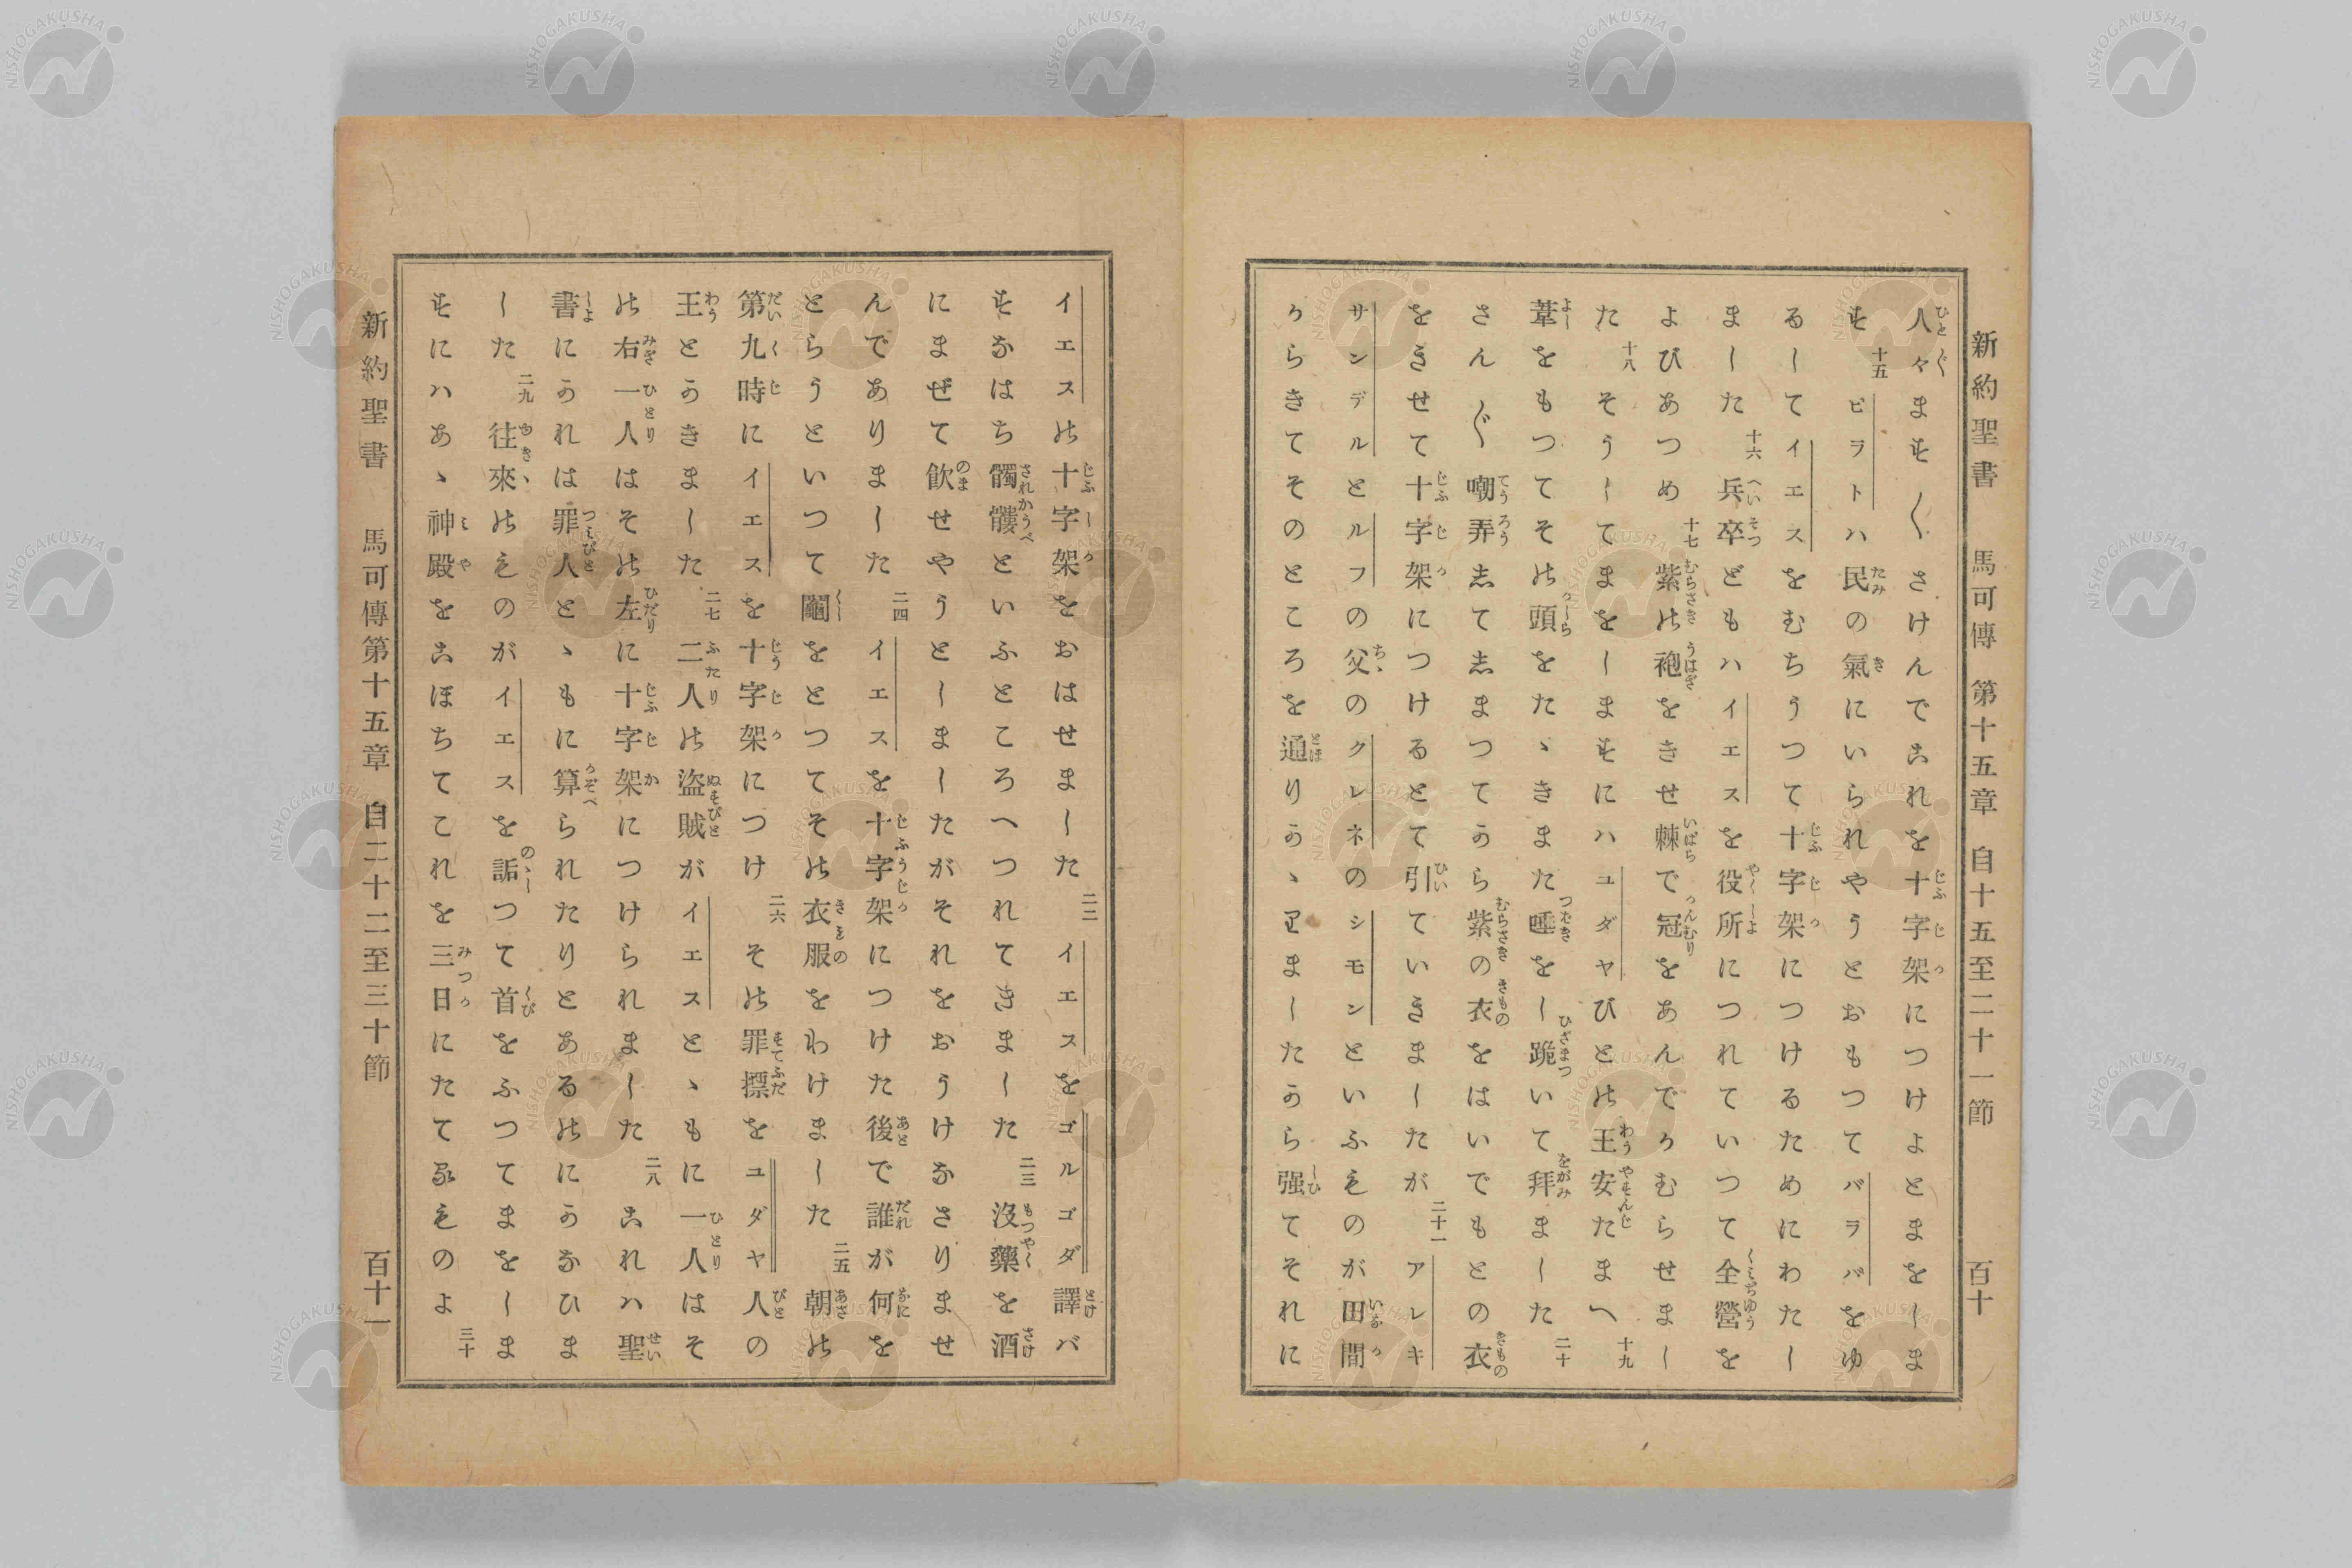 新約聖書　馬可傳　第十五章　自十五至二十一節　百十
人々ます〳〵さけんでこれを十字架につけよとまをしま
す十五ピラトハ民の氣にいられやうとおもつてバラバをゆ
るしてイエスをむちうつて十字架につけるためにわたし
ました十六兵卒どもハイエスを役所につれていつて全營を
よびあつめ十七紫の袍をきせ棘で冠をあんでかむらせまし
た十八そうしてまをしますにハユダヤびとの王安たまへ十九
葦をもつてその頭をたゝきました唾をし跪いて拜ました二十
さん〴〵嘲弄してしまつてから紫の衣をはいでもとの衣
をきせて十字架につけるとて引ていきましたが二十一アレキ
サンデルとルフの父のクレネのシモンといふものが田間
からきてそのところを通りかゝりましたから强てそれに
イエスの十字架をおはせました二二イエスをゴルゴダ譯バ
すなはち髑髏といふところへつれてきました二三沒藥を酒
にまぜて飮せやうとしましたがそれをおうけなさりませ
んでありました二四イエスを十字架につけた後で誰が何を
とらうといつて鬮をとつてその衣服をわけました二五朝の
第九時にイエスを十字架につけ二六その罪標をユダヤ人の
王とかきました二七二人の盜賊がイエスとゝもに一人はそ
の右一人はその左に十字架につけられました二八これハ聖
書にかれは罪人とゝもに算られたりとあるのにかなひま
した二九往來のものがイエスを詬つて首をふつてまをしま
すにハあゝ神殿をこほちてこれを三日にたてるものよ三十
新約聖書　馬可傳第十五章　自二十二至三十節　百十一